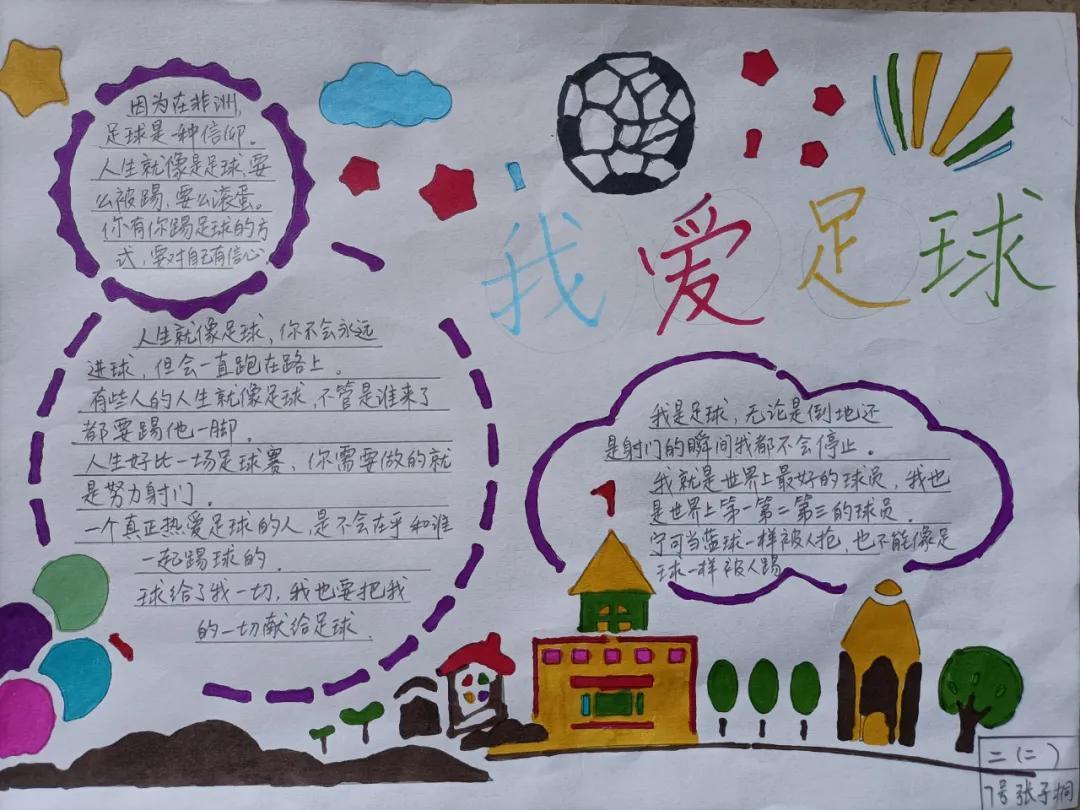 我爱足球
因为在非洲,
足球是一种信仰.
人生就像是足球,要
么被踢,要么滚蛋。
你有你踢足球的方
式,要对自己有信心
人生就像足球,你不会永远
进球,但会一直跑在路上。
有些人的人生就像足球,不管是谁来了
都要踢他一脚.
人生好比一场足球赛,你需要做的就
是努力射门.
一个真正热爱足球的人,是不会在乎和谁
一起踢球的.
球给了我一切,我也要把我
的一切献给足球.
我是足球,无论是倒地还
是射门的瞬间我都不会停止。
我就是世界上最好的球员,我也
是世界上第一第二第三的球员.
宁可当蓝球一样被人抢,也不能像足
球一样被人踢
二(二)
7号张子桐